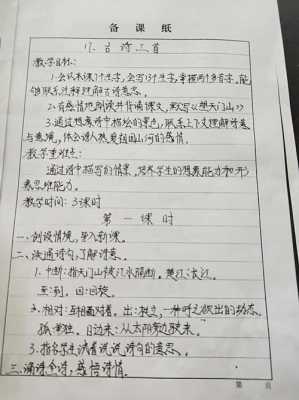 备课纸
17. 古诗三首
教学目标：
1. 会认本课7个生字，会写13个生字，掌握两个多音字，能
够联系注释理解古诗意思。
2. 有感情地朗读并背诵课文，默写《望天门山》
3. 通过想象诗中描绘的景色，联系上下文理解诗意
与意境，体会诗人热爱祖国山河的感情。
教学重难点：
通过诗中描写的情景，培养学生的想象能力和形
象思维能力。
教学时间：3课时
第一课时
一、创设情境，导入新课。
二、读通诗句，了解诗意。
1. 中断：指天门山被江水隔断。楚江：长江。
至：到。回：回旋。
2. 相对：互相面对着。出：耸立，一种呼之欲出的动态。
孤：单独。日边来：从太阳旁驶来。
3. 指名学生试着说说诗句的意思。
三、诵读全诗，感悟诗情。
第 页